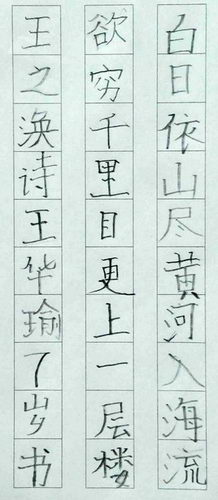 白日依山尽黄河入海流
欲穷千里目更上一层楼
王之涣诗王华瑜7岁书